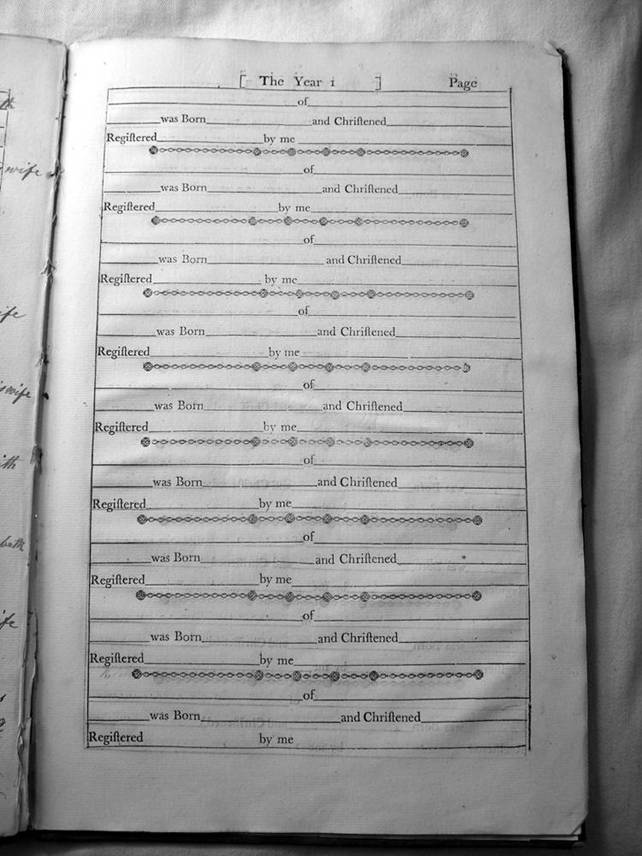 [ The Year 1 ] Page
of
was Born and Chriſtened
Regiſtered by me
of
was Born and Chriſtened
Regiſtered by me
of
was Born and Chriſtened
Regiſtered by me
of
was Born and Chriſtened
Regiſtered by me
of
was Born and Chriſtened
Regiſtered by me
of
was Born and Chriſtened
Regiſtered by me
of
was Born and Chriſtened
Regiſtered by me
of
was Born and Chriſtened
Regiſtered by me
of
was Born and Chriſtened
Regiſtered by me
wife
wife